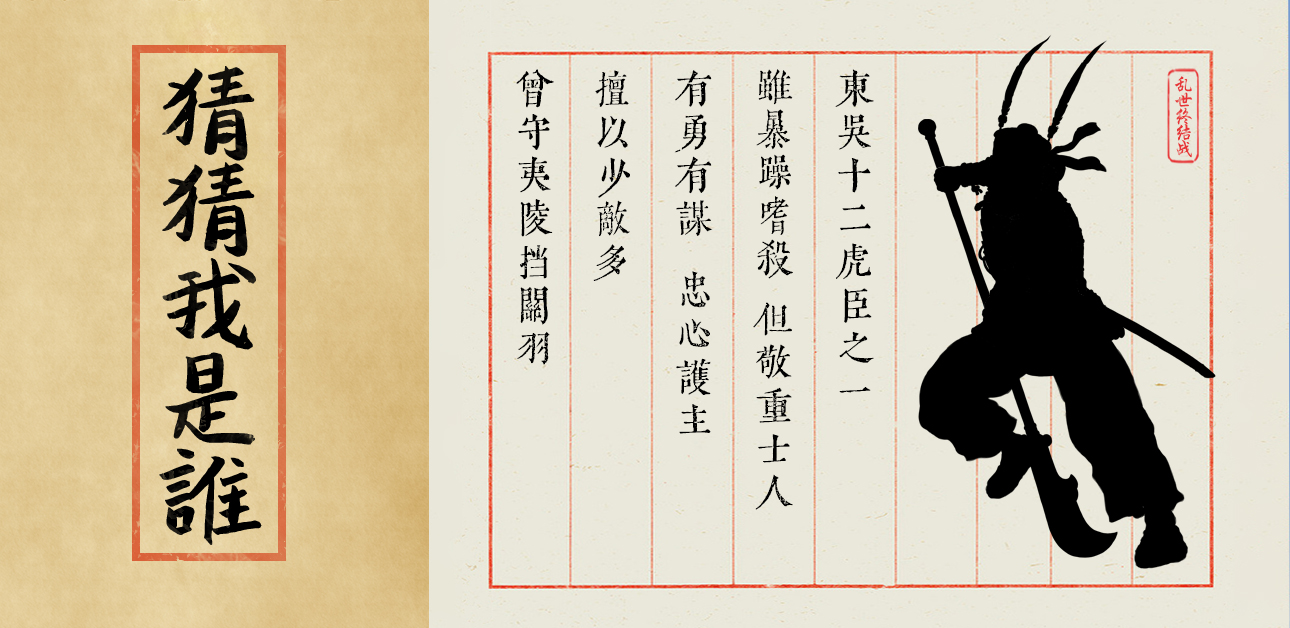 猜猜我是誰
乱世终结战
東吳十二虎臣之一
雖暴躁嗜殺 但敬重士人
有勇有謀 忠心護主
擅以少敵多
曾守夷陵挡關羽